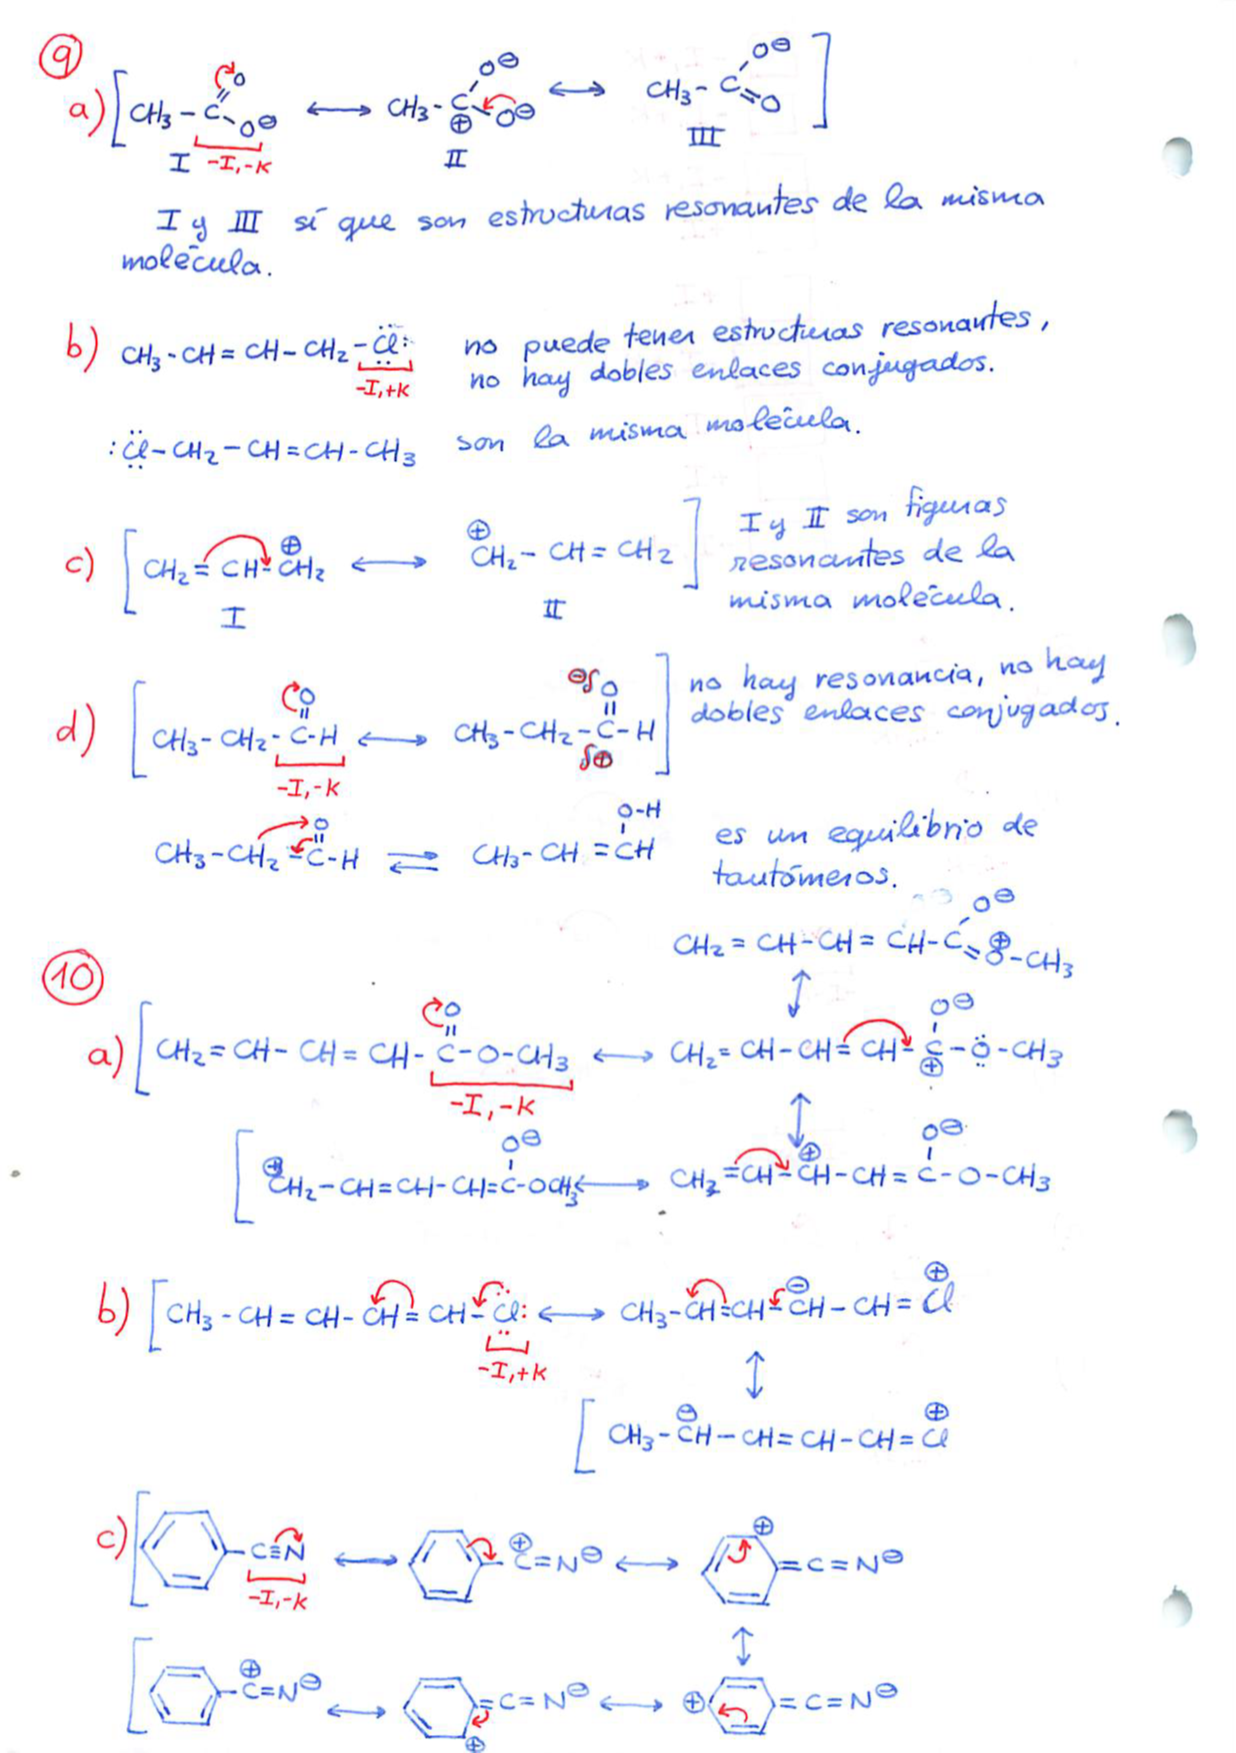 9
a) [CH3-C(=O)-O⊖ ↔ CH3-C⊕(-O⊖)-O⊖ ↔ CH3-C(-O⊖)=O]
I -I,-K II III
I y III sí que son estructuras resonantes de la misma
molécula.
b) CH3-CH=CH-CH2-Cl: no puede tener estructuras resonantes,
-I,+K no hay dobles enlaces conjugados.
:Cl-CH2-CH=CH-CH3 son la misma molécula.
c) [CH2=CH-⊕CH2 ↔ ⊕CH2-CH=CH2] I y II son figuras
resonantes de la
I II misma molécula.
d) [CH3-CH2-C(=O)-H ↔ CH3-CH2-C(=O)-H] no hay resonancia, no hay
dobles enlaces conjugados.
⊖δ δ⊕
-I,-K
CH3-CH2-C(=O)-H ⇌ CH3-CH=CH(O-H) es un equilibrio de
tautómeros.
CH2=CH-CH=CH-C(O⊖)=O⊕-CH3
↕
10
a) [CH2=CH-CH=CH-C(=O)-O-CH3 ↔ CH2=CH-CH=CH-C⊕(O⊖)-O-CH3
-I,-K ↕
[⊕CH2-CH=CH-CH=C(O⊖)-OCH3 ↔ CH2=CH-⊕CH-CH=C(O⊖)-O-CH3
b) [CH3-CH=CH-CH=CH-Cl: ↔ CH3-CH=CH-⊖CH-CH=Cl⊕
-I,+K ↕
[CH3-⊖CH-CH=CH-CH=Cl⊕
c) [-C≡N ↔ -⊕C=N⊖ ↔ ⊕ =C=N⊖
-I,-K ↕
[-⊕C=N⊖ ↔ ⊕ =C=N⊖ ↔ ⊕ =C=N⊖